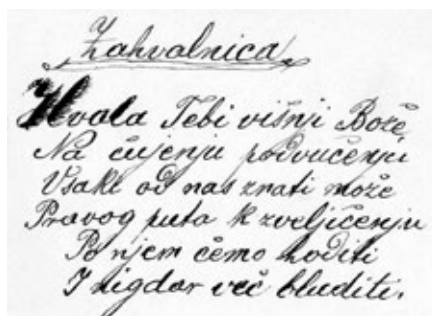 Zahvalnica
Hvala Tebi višnji Bože
Na čujenju podvučenju
Vsaki od nas znati može
Pravog puta k zveljičenju
Po njem čemo hoditi
I nigdar več bluditi.